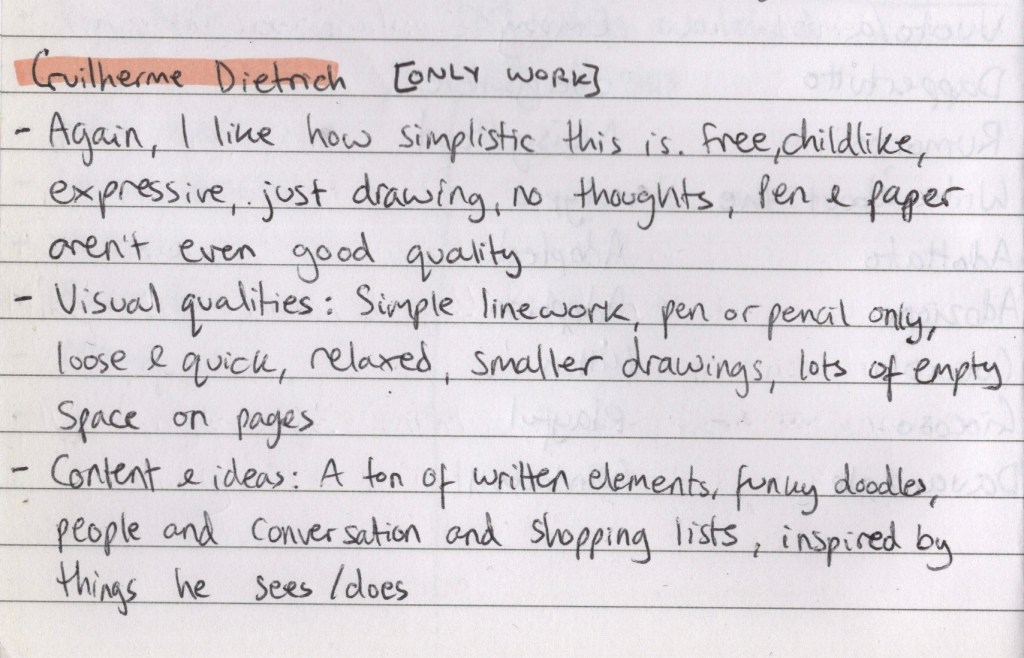 Guilherme Dietrich [ONLY WORK]
- Again, I like how simplistic this is. free, childlike,
expressive, just drawing, no thoughts, Pen & paper
aren't even good quality
- Visual qualities: Simple linework, pen or pencil only,
loose & quick, relaxed, smaller drawings, lots of empty
space on pages
- Content & ideas: A ton of written elements, funky doodles,
people and conversation and shopping lists, inspired by
things he sees/does